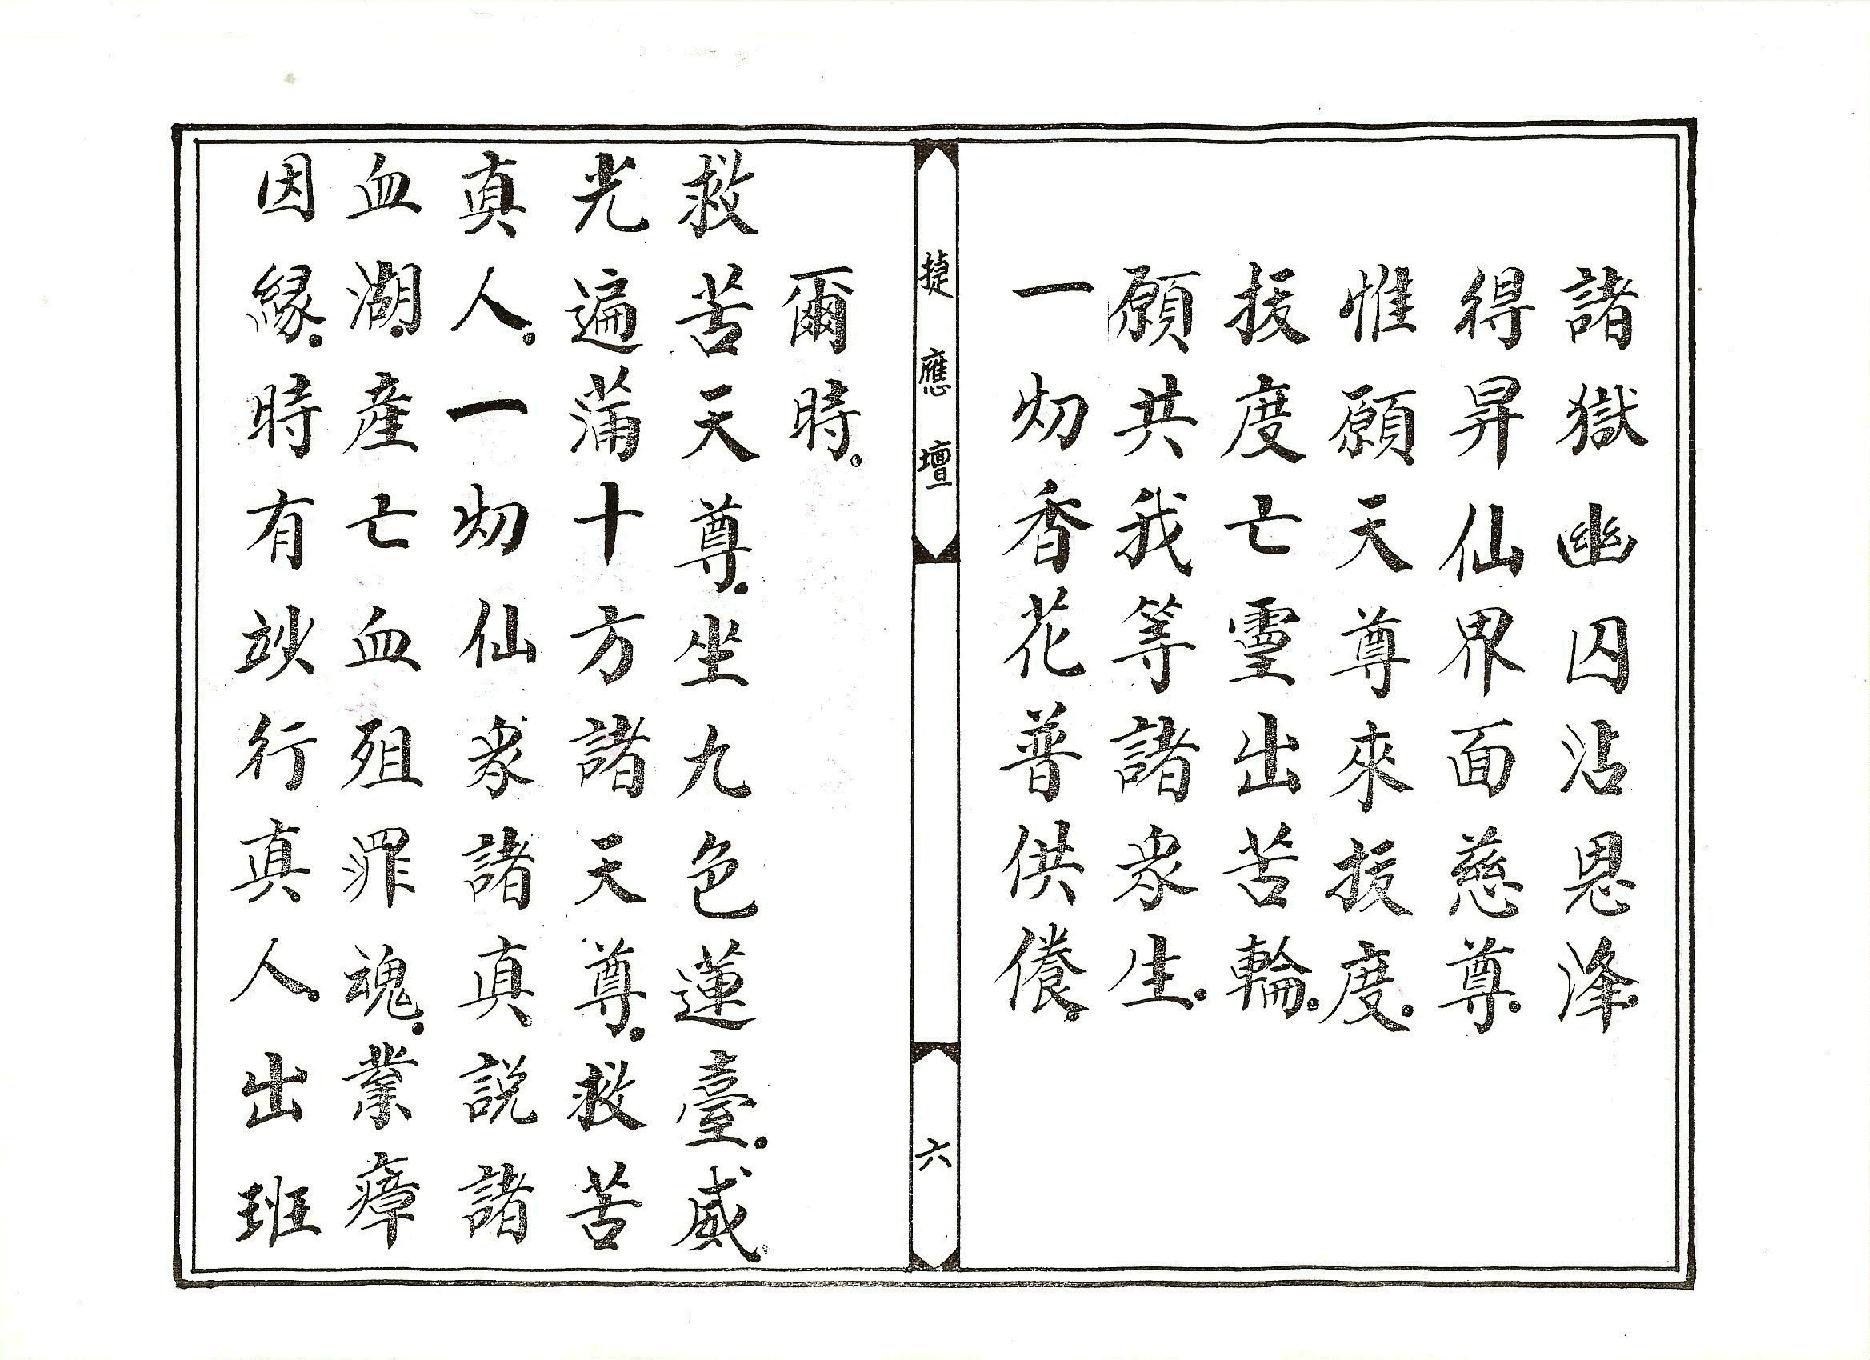 諸獄幽囚沾恩泽
得昇仙界面慈尊
惟願天尊來援度
援度亡靈出苦輪
願共我等諸衆生
一切香花普供養
捷應壇
六
爾時
救苦天尊坐九色蓮臺威
光遍蒲十方諸天尊救苦
真人一切仙衆諸真説諸
血湖産亡血殂罪魂業瘴
因緣時有玅行真人出班